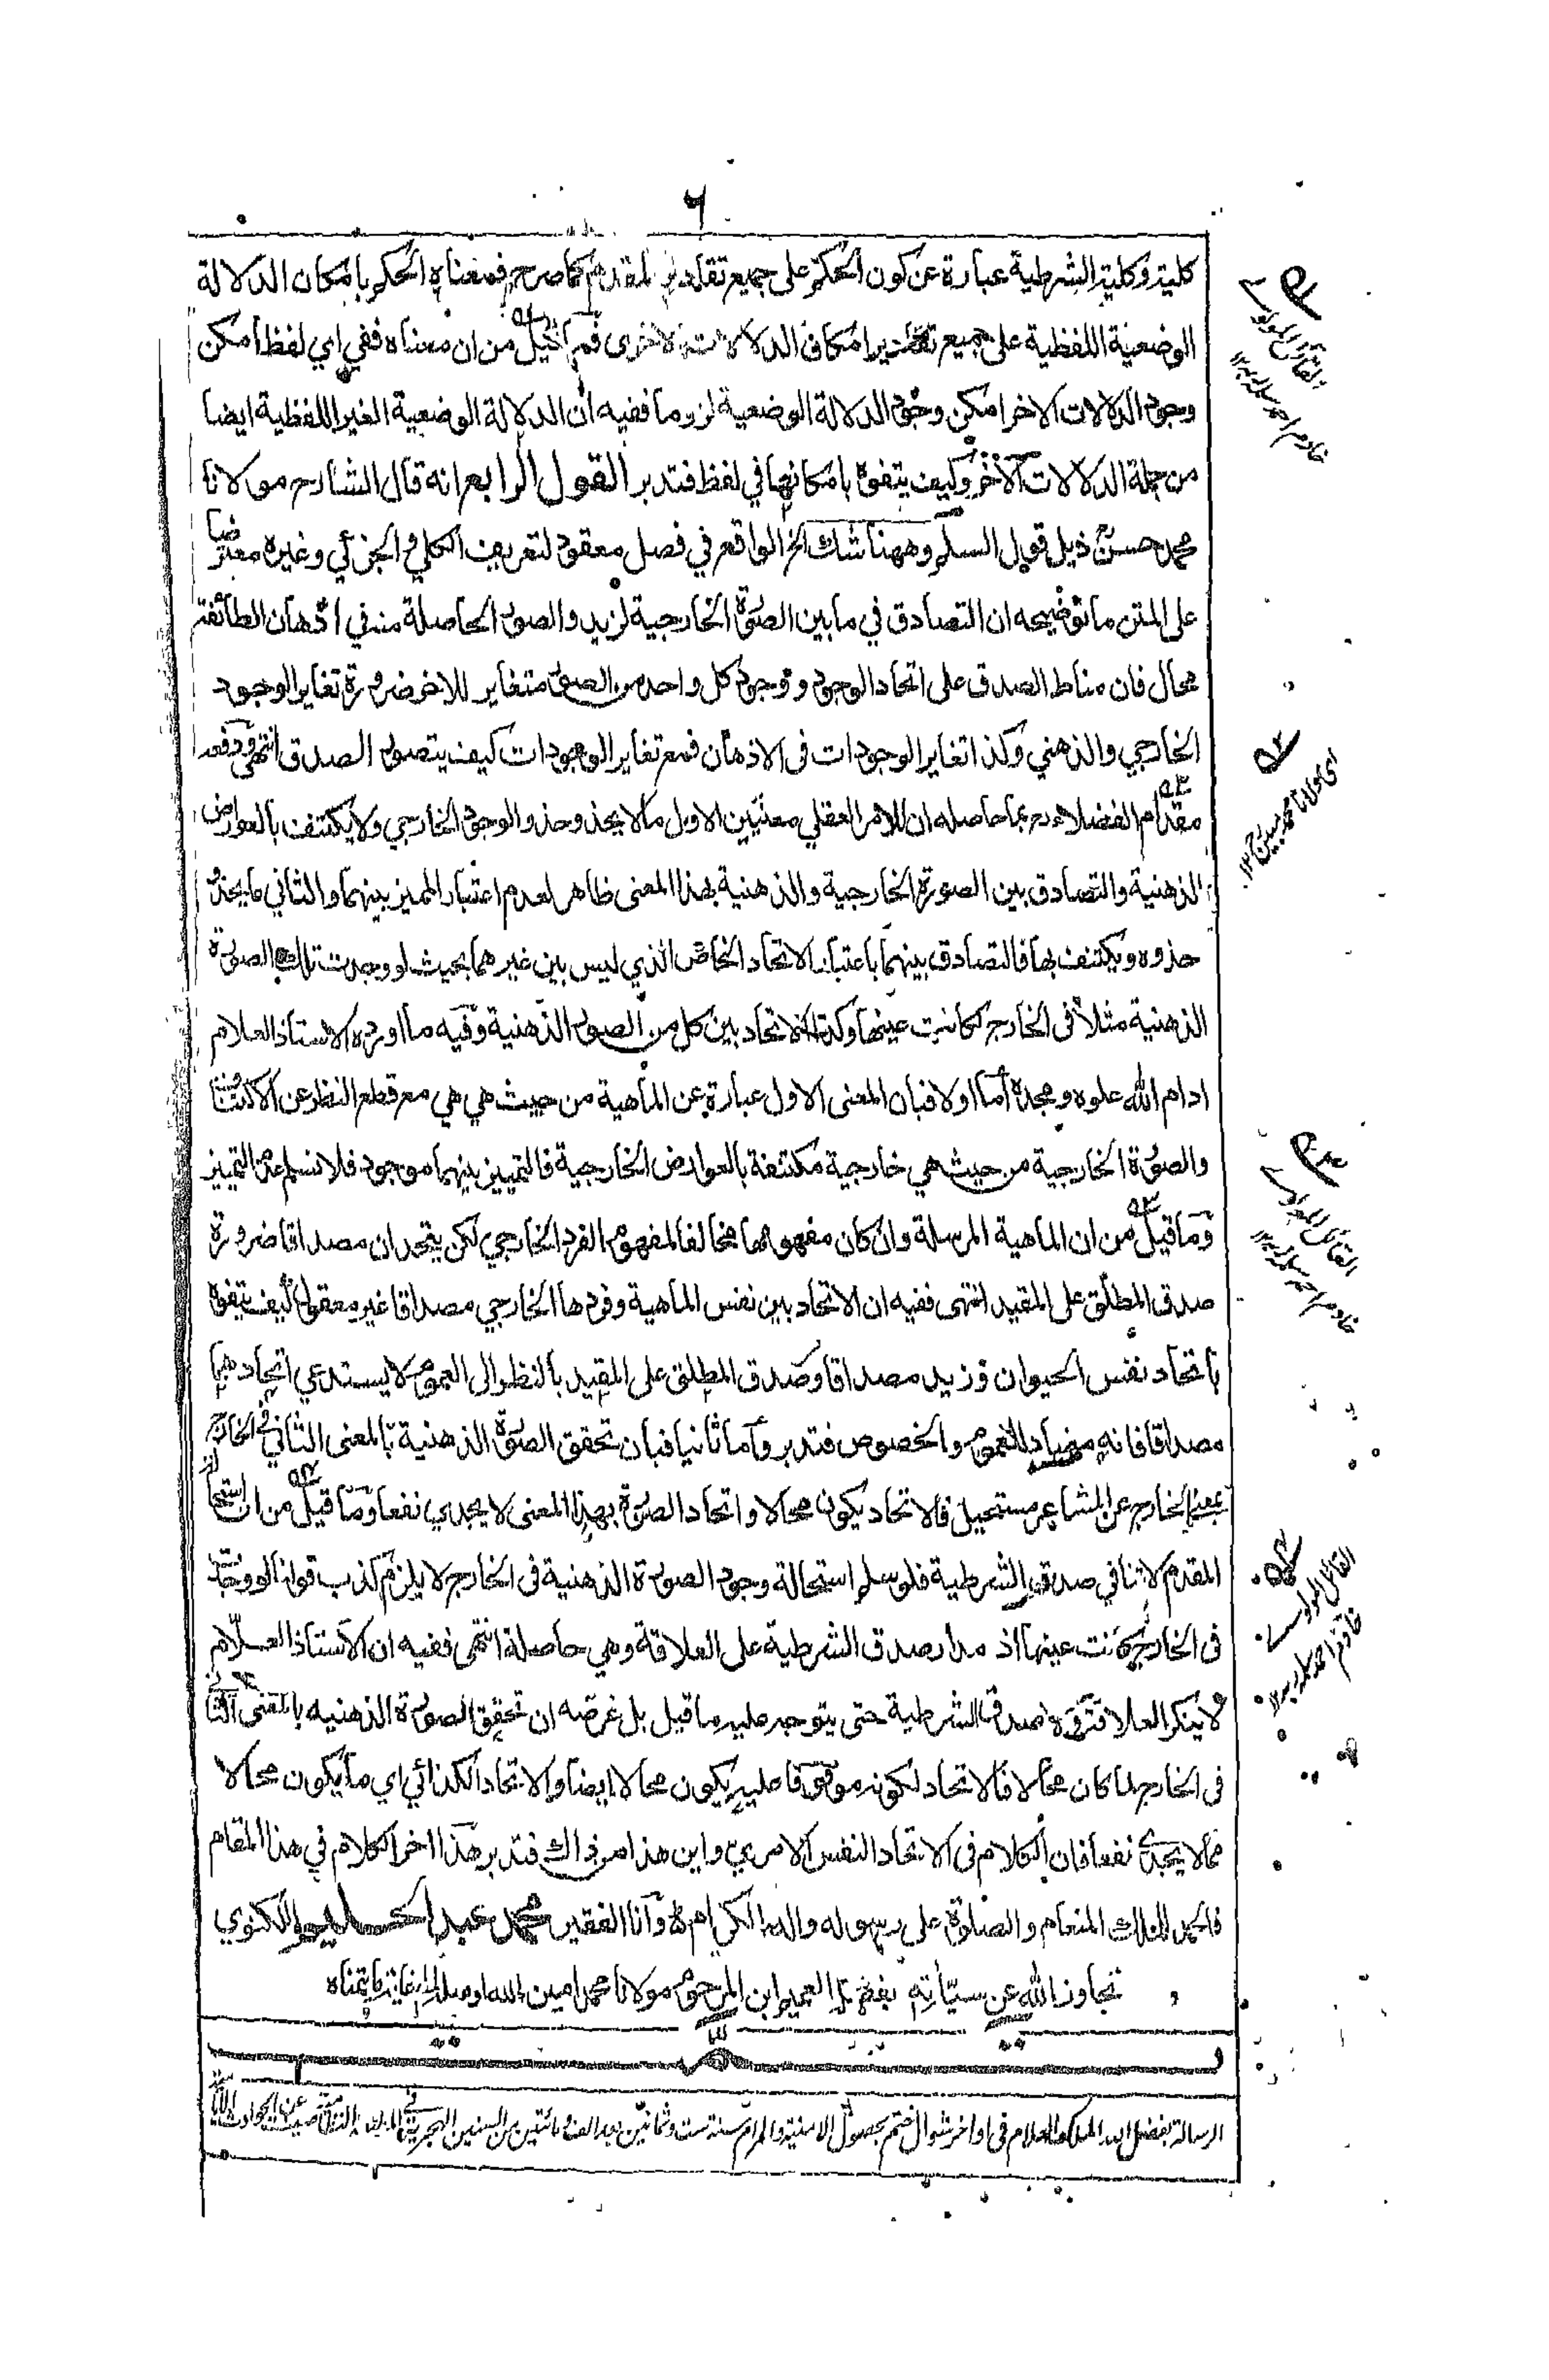 ٦
كلية وكلية الشرطية عبارة عن كون الحكم على جميع تقادير المقدم كما صرح فمعناه الحكم بامكان الدلالة
الوضعية اللفظية على جميع تقادير امكان الدلالات الاخرى فما قيل من ان معناه ففي اي لفظ امكن
وجود الدلالات الاخر امكن وجود الدلالة الوضعية لزوما ففيه ان الدلالة الوضعية الغير اللفظية ايضا
من جملة الدلالات الاخر وكيف يتفوه بامكانها في لفظ فتدبر القول الرابع انه قال الشارح مولانا
محمد حسن ذيل قول السلم وههنا شك الخ الواقع في فصل معقود لتعريف الكلي والجزئي وغيره معترضا
على المتن ما توضيحه ان التصادق في ما بين الصورة الخارجية لزيد والصور الحاصلة منه في اذهان الطائفة
محال فان مناط الصدق على اتحاد الوجود ووجود كل واحد من الصور متغاير للاخر ضرورة تغاير الوجود
الخارجي والذهني وكذا تغاير الوجودات في الاذهان فمع تغاير الوجودات كيف يتصور الصدق انتهى ودفعه
مقدام الفضلاء رح بما حاصله ان للامر العقلي معنيين الاول ما لا يحذو حذو الوجود الخارجي ولا يكتنف بالعوارض
الذهنية والتصادق بين الصورة الخارجية والذهنية بهذا المعنى ظاهر لعدم اعتبار المميز بينهما والثاني ما يحذو
حذوه ويكتنف بها فالتصادق بينهما باعتبار الاتحاد الخاص الذي ليس بين غيرهما بحيث لو وجدت تلك الصورة
الذهنية مثلا في الخارج لكانت عينها وكذا الاتحاد بين كل من الصور الذهنية وفيه ما اورده الاستاذ العلام
ادام الله علوه ومجده اما اولا فبان المعنى الاول عبارة عن الماهية من حيث هي هي مع قطع النظر عن الاكتناف
والصورة الخارجية من حيث هي خارجية مكتنفة بالعوارض الخارجية فالتمييز بينهما موجود فلا نسلم عدم التمييز
وما قيل من ان الماهية المرسلة وان كان مفهومها مخالفا لمفهوم الفرد الخارجي لكن يتحدان مصداقا ضرورة
صدق المطلق على المقيد انتهى ففيه ان الاتحاد بين نفس الماهية وفردها الخارجي مصداقا غير معقول كيف يتفوه
باتحاد نفس الحيوان وزيد مصداقا وصدق المطلق على المقيد بالنظر الى العموم لا يستدعي اتحادهما
مصداقا فانه للعموم والخصوص فتدبر واما ثانيا فبان تحقق الصورة الذهنية بالمعنى الثاني في الخارج
بمعنى الخارج عن المشاعر مستحيل فالاتحاد يكون محالا واتحاد الصورة بهذا المعنى لا يجدي نفعا وما قيل من ان استحالة
المقدم لا تنافي صدق الشرطية فلو سلم استحالة وجود الصورة الذهنية في الخارج لا يلزم كذب قولنا لو وجدت
في الخارج كانت عينها اذ مدار صدق الشرطية على العلاقة وهي حاصلة انتهى ففيه ان الاستاذ العلام
لا ينكر العلاقة وصدق الشرطية حتى يتوجه عليه ما قيل بل غرضه ان تحقق الصورة الذهنية بالمعنى الثاني
في الخارج لما كان محالا فالاتحاد لكونه موقوفا عليه يكون محالا ايضا والاتحاد الكذائي اي ما يكون محالا
مما لا يجدي نفعا فان الكلام في الاتحاد النفس الامري واين هذا من ذاك فتدبر هذا اخر الكلام في هذا المقام
فالحمد للملك المنعام والصلوة على رسوله واله الكرام وانا الفقير محمد عبد الحليم اللكنوي
تجاوز الله عن سيئاته بفضله العميم ابن المرحوم مولانا محمد امين الله اوصله الله غاية ما يتمناه
الرسالة بفضل الله الملك العلام في اواخر شوال ختم بحصول الامنية والمرام سنة ست وثمانين بعد الف ومائتين من السنين الهجرية في
القائل المولوي
خادم احمد سلمه ربه ١٢
اي مولانا محمد مبين رح ١٢
القائل المولوي
خادم احمد سلمه ربه ١٢
القائل المولوي
خادم احمد سلمه ربه ١٢